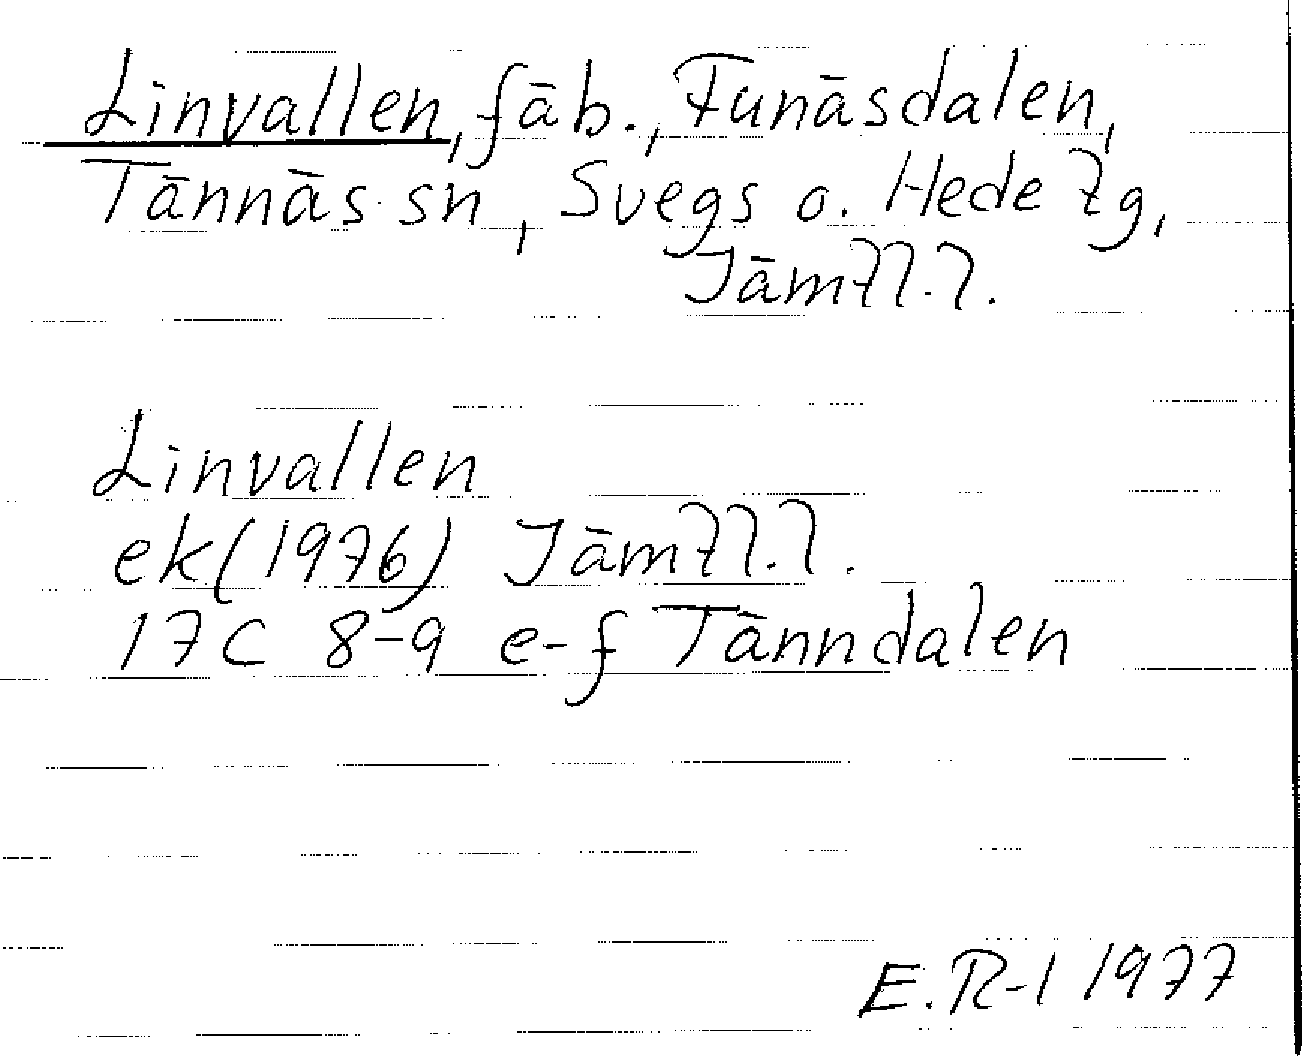 Linvallen, fäb., Funäsdalen,
Tännäs sn, Svegs o. Hede tg,
Jämtl.l.
Linvallen
ek (1976) Jämtl.l.
17C 8-9 e-f Tänndalen
E.R-l 1977